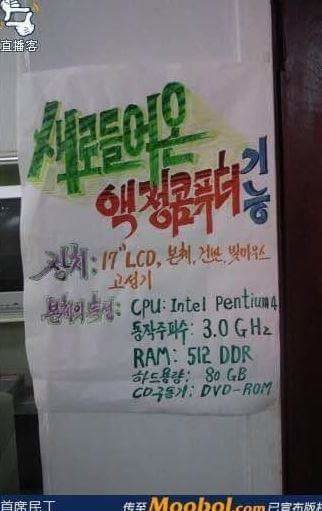 直播客
새로들어온
액정콤퓨터기능
장치: 17" LCD, 본체, 건반, 빛마우스
고성기
본체의 특성: CPU: Intel Pentium4
동작주파수: 3.0 GHz
RAM: 512 DDR
하드용량: 80 GB
CD구동기: DVD-ROM
首席民工
传至 Moobol.com 已宣布版权